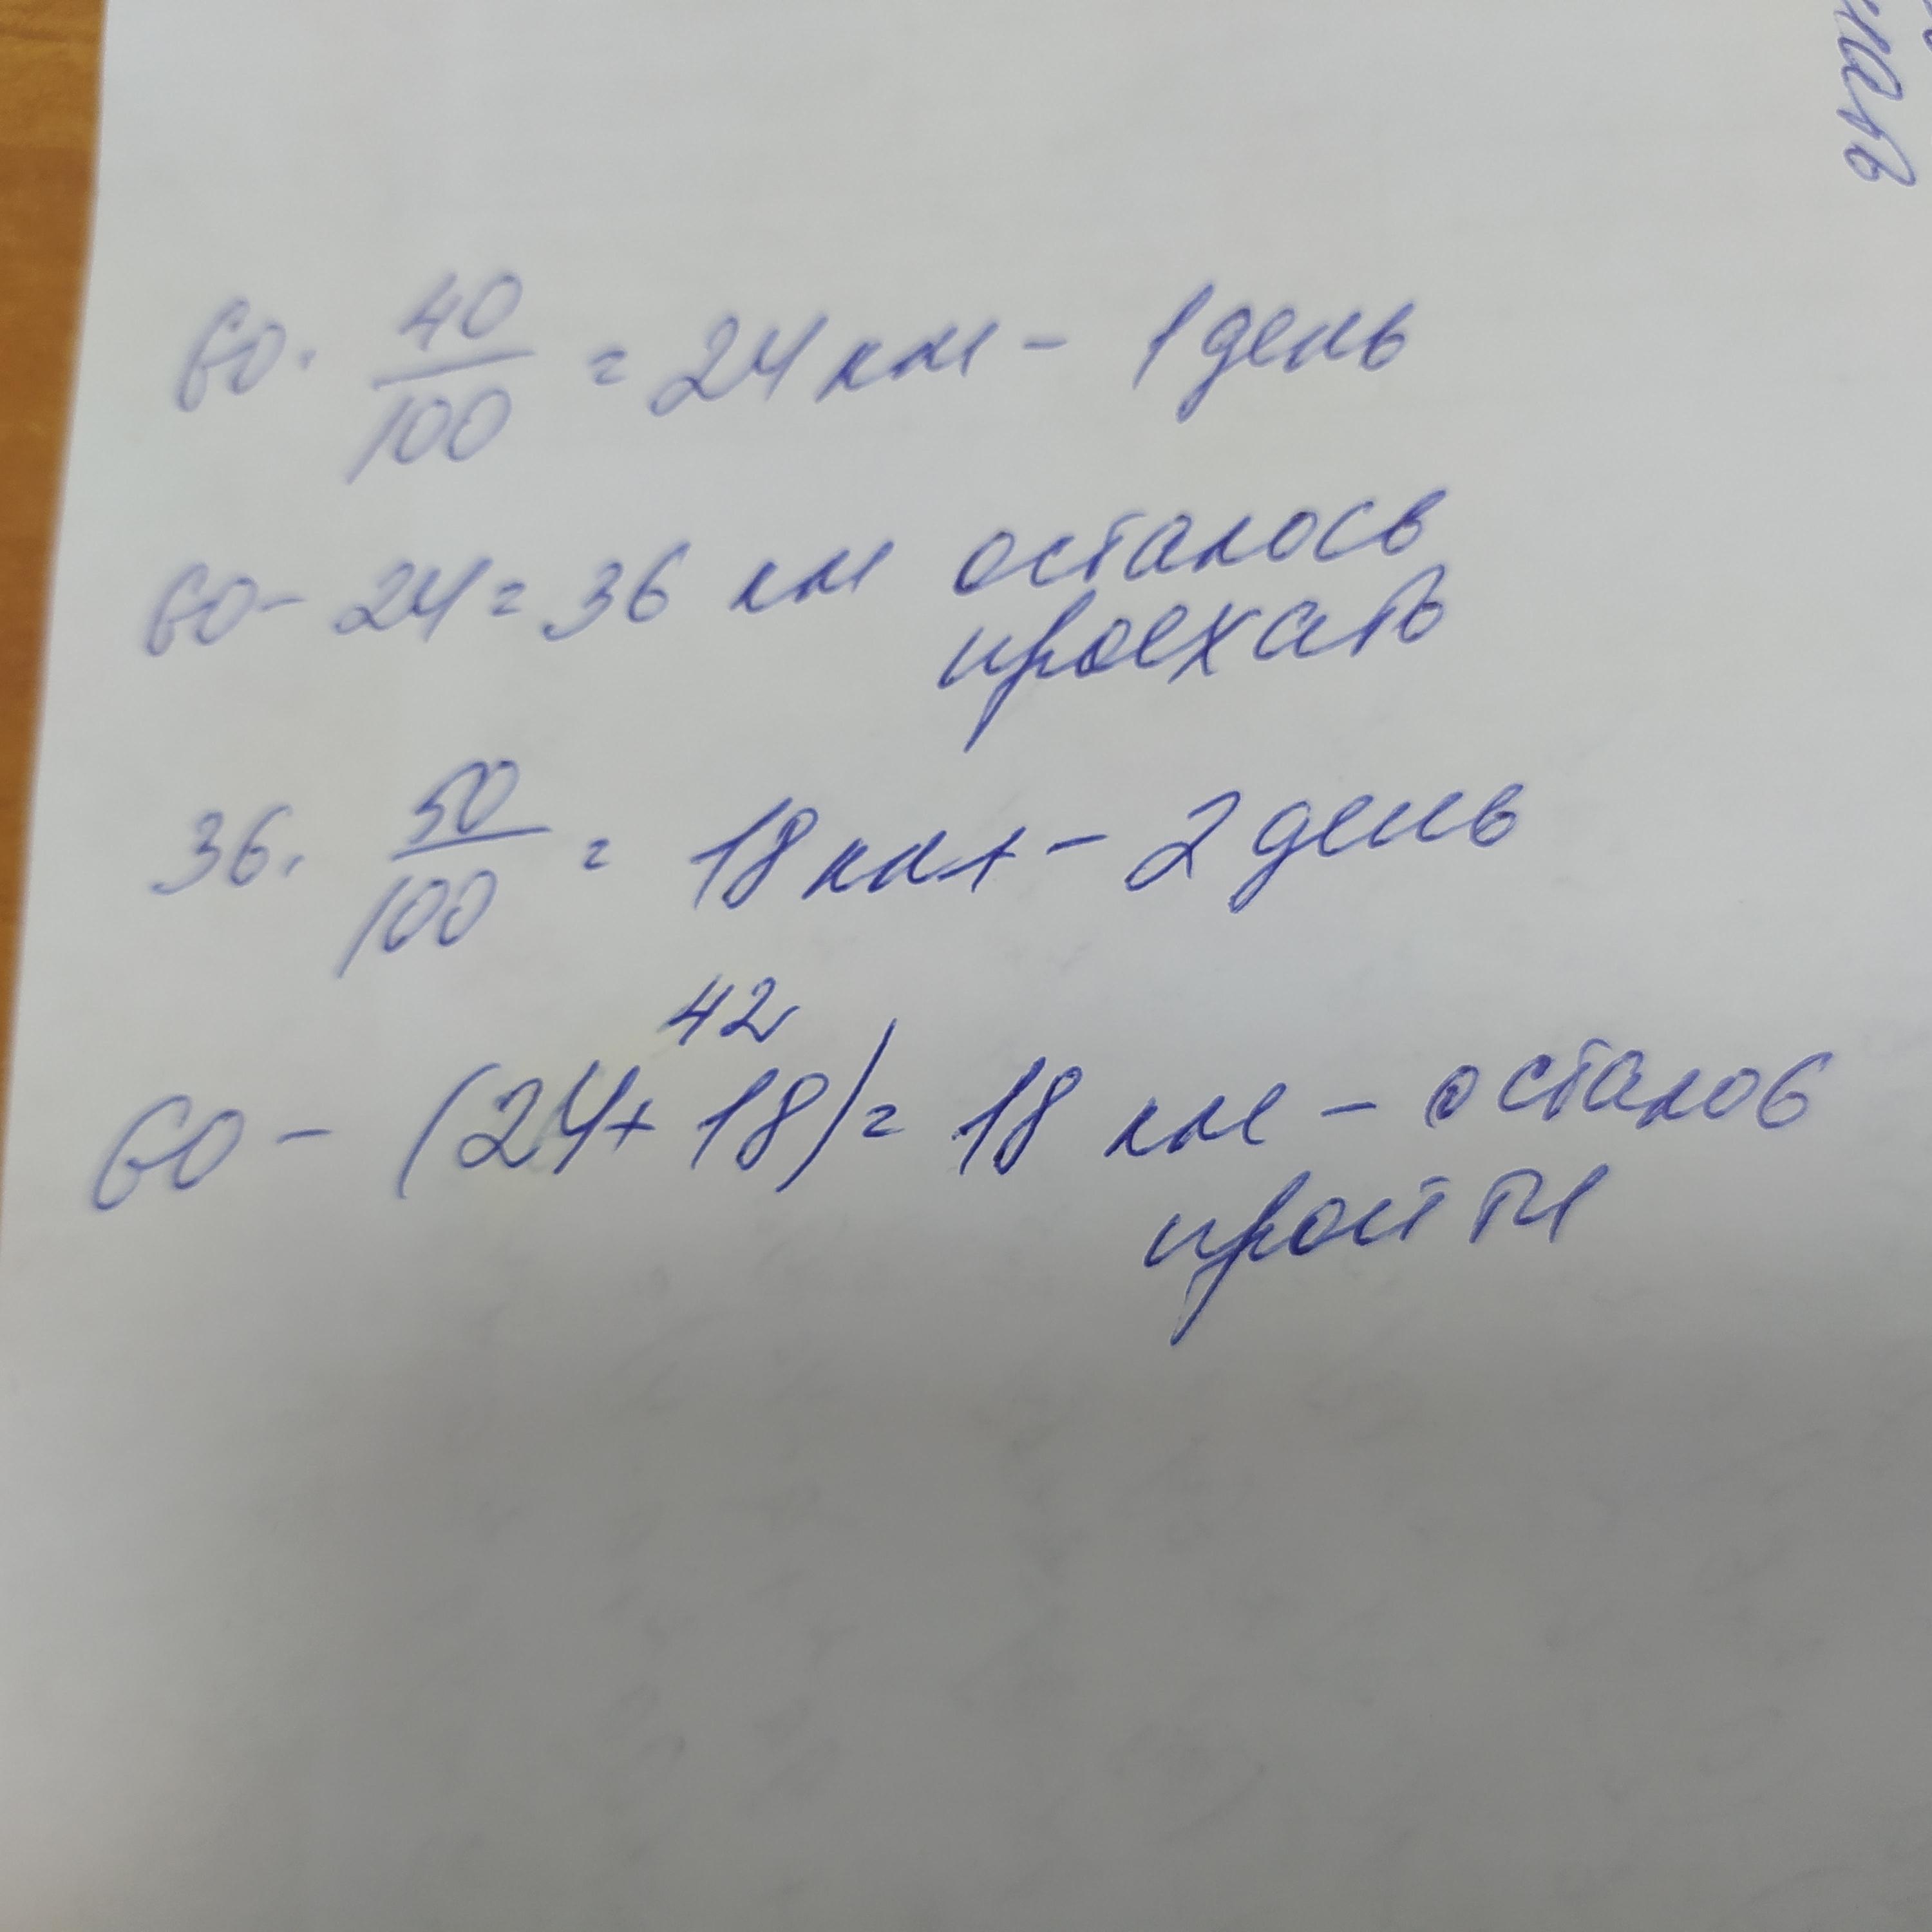 60 · 40/100 = 24 км - 1 день
60 - 24 = 36 км осталось
проехать
36 · 50/100 = 18 км - 2 день
42
60 - (24 + 18) = 18 км - осталов
пройти